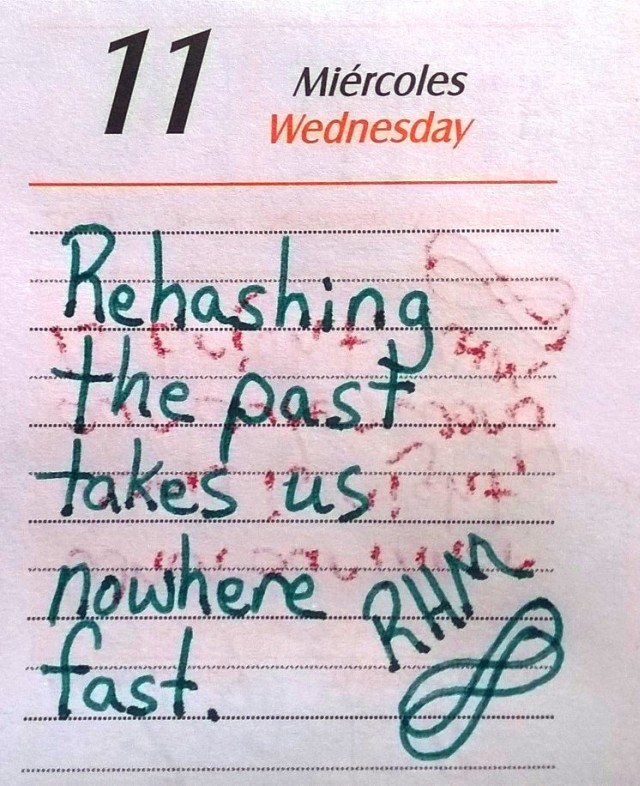 11
Miércoles
Wednesday
Rehashing
the past
takes us
nowhere
fast.
RHM